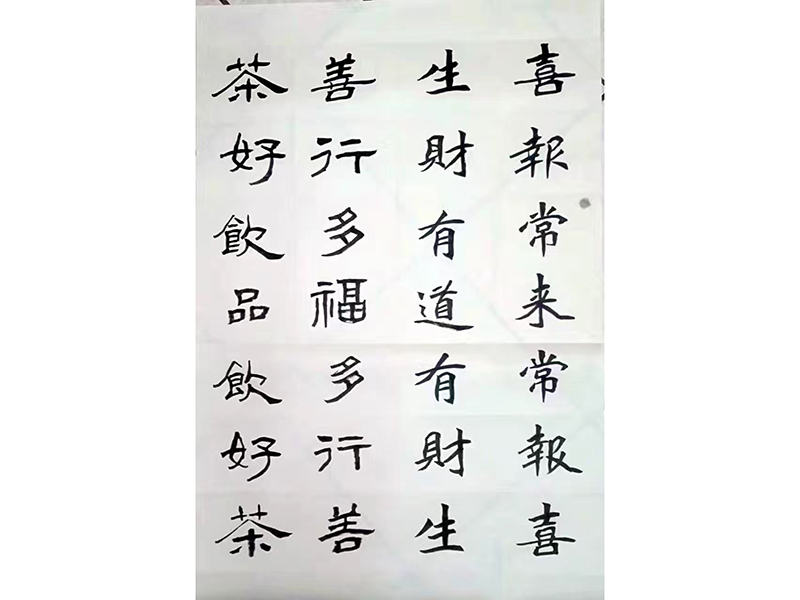 喜報常来常報喜
生財有道有財生
善行多福多行善
茶好飲品飲好茶